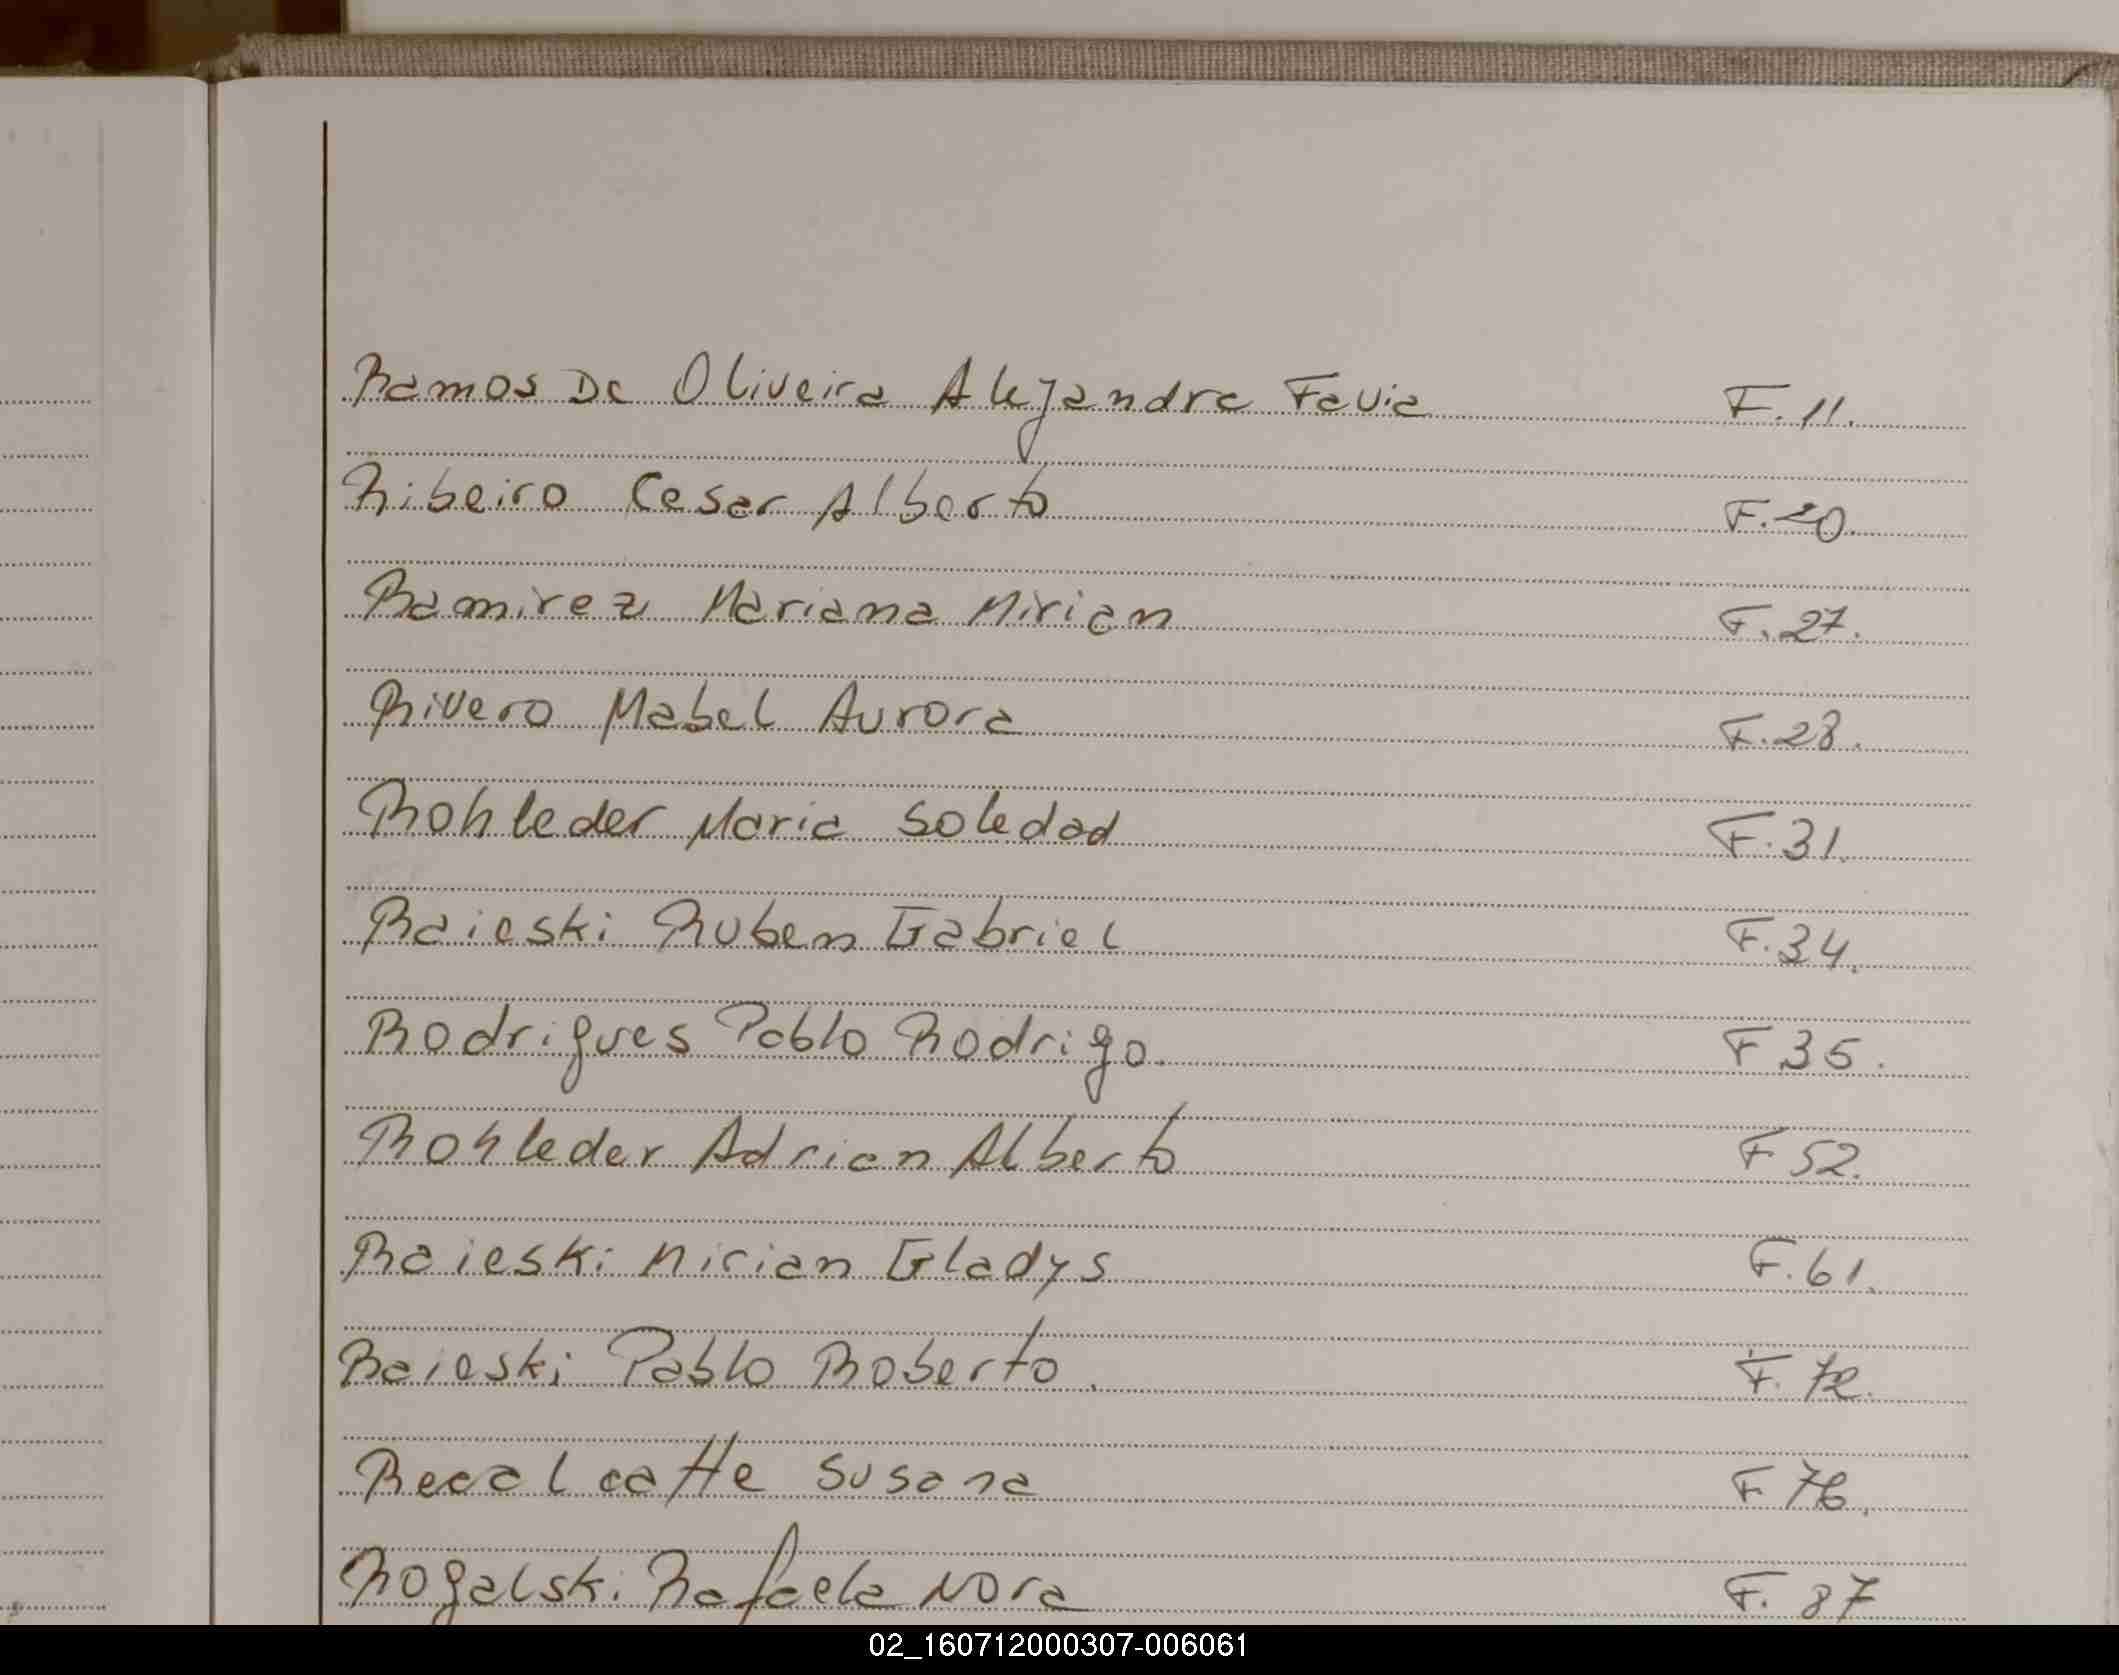 Ramos De Oliveira Alejandra Favia F.11.
Ribeiro Cesar Alberto F.20.
Ramirez Mariana Mirian F.27.
Rivero Mabel Aurora F.28.
Rohleder Maria Soledad F.31.
Raieski Ruben Gabriel F.34.
Rodrigues Pablo Rodrigo. F 35.
Rohleder Adrian Alberto F 52.
Raieski Mirian Gladys F.61.
Raieski Pablo Roberto. F.72.
Recalcatte Susana F 76.
Rogalski Rafaela Nora F. 87
02_160712000307-006061